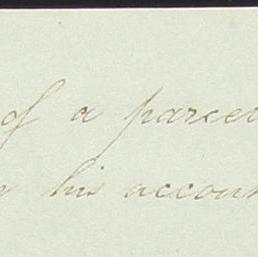 of a parcel
his accoun